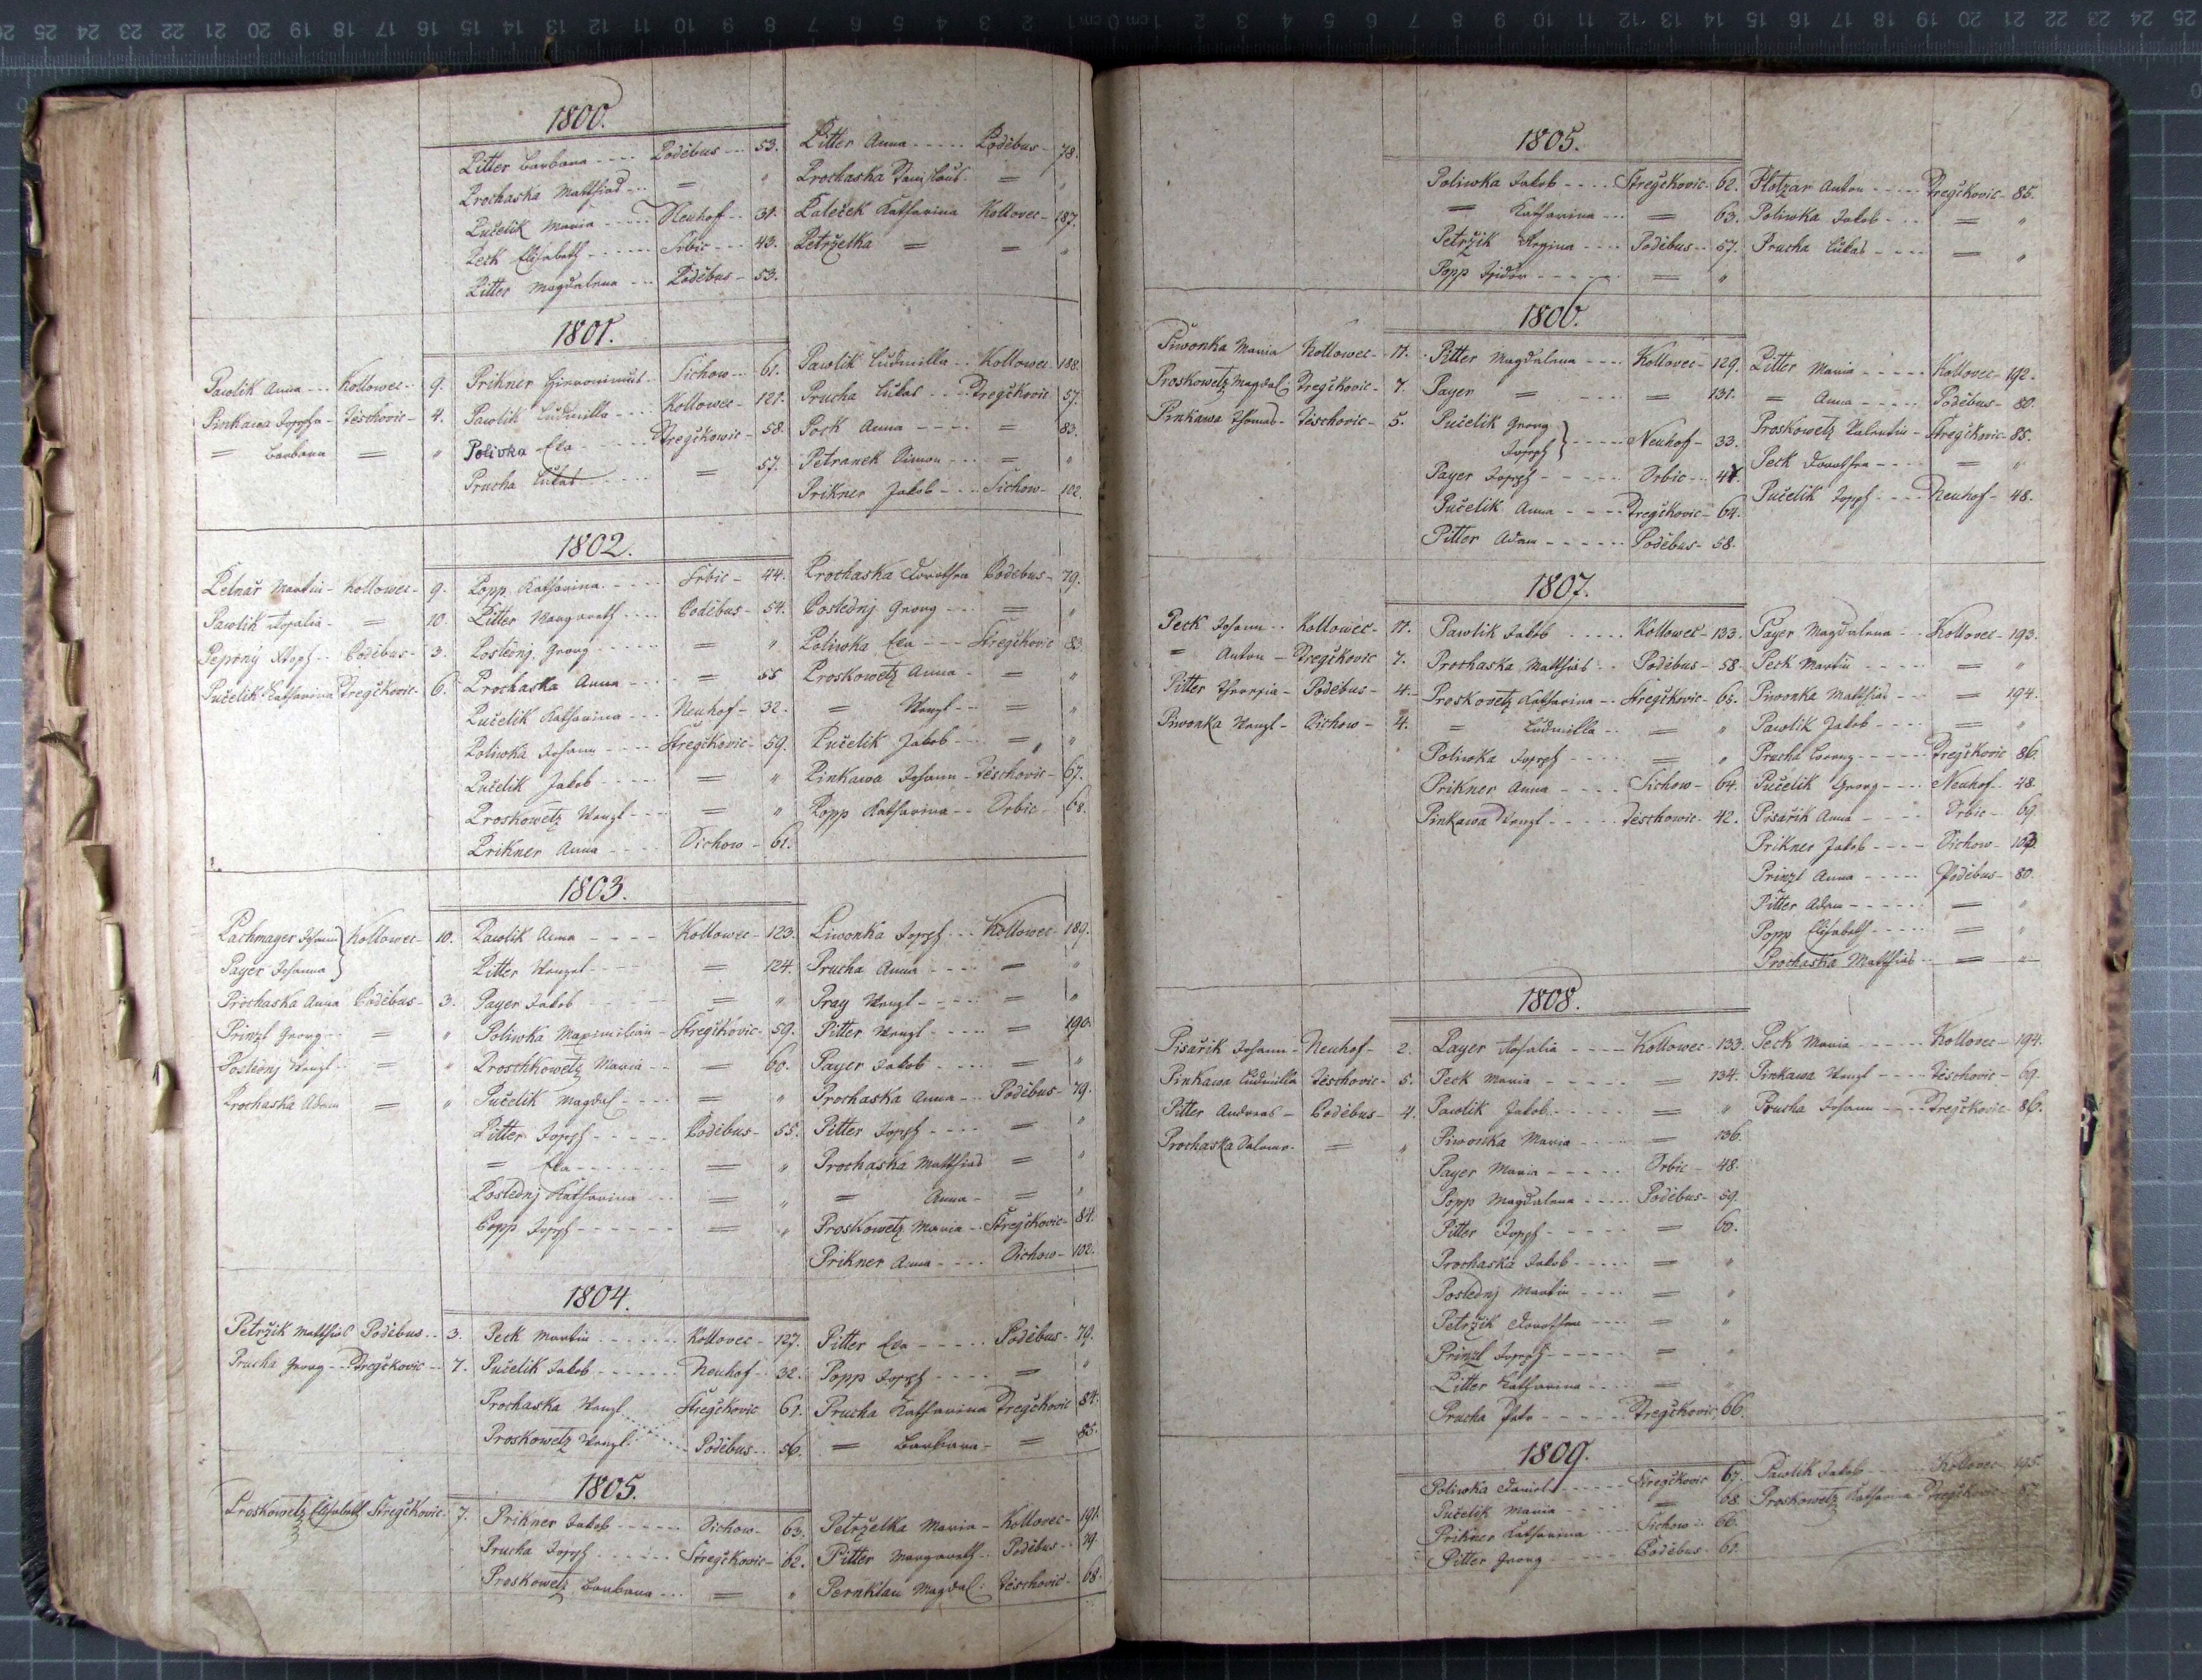 1800.
Pitter Barbara ---- Podébus --- 53. Pitter Anna ----- Podébus - 78.
Prochaska Matthias --- = " Prochaska Stanislaus = "
Pučelik Maria ---- Neuhof -- 31. Paleček Katharina Kollovec - 187.
Peck Elisabeth ----- Srbic --- 43. Petrzelka = = "
Pitter Magdalena --- Podébus - 53.
1801.
Pawlik Anna --- Kollowec - 9. Prikner Hieronimus - Sichow -- 61. Pawlik Ludmilla -- Kollowec 188.
Pinkawa Joseph - Teschovic - 4. Pawlik Ludmilla --- Kollowec - 121. Prucha Lukas --- Stregčkovic 57.
= Barbara = " Polivka Eva ----- Stregčkowic - 58. Pock Anna ---- = 83.
Prucha Lukas ---- = 57. Petranek Simon --- = "
Prikner Jakob --- Sichow - 102.
1802.
Petnař Martin - Kollowec - 9. Popp Katharina ---- Srbic - 44. Prochaska Dorothea Podébus - 79.
Pawlik Rosalia - = 10. Pitter Margareth --- Podébus - 54. Poslednj Georg --- = "
Peprny Joseph -- Podébus - 3. Poslednj Georg ---- = " Poliwka Eva --- Stregčkovic 83.
Pučelik Katharina Stregčkovic - 6. Prochaska Anna --- = 55 Proskowetz Anna - = "
Pučelik Katharina --- Neuhof - 32. = Wenzl -- = "
Poliwka Johann ---- Stregčkovic - 59. Pučelik Jakob --- = "
Pučelik Jakob ---- = " Pinkawa Johann - Teschovic - 67.
Proskowetz Wenzl --- = " Popp Katharina -- Srbic -- 68.
Prikner Anna ---- Sichow - 61.
1803.
Pachmayer Johann Kollowec - 10. Pawlik Anna ---- Kollowec - 123. Piwonka Joseph --- Kollowec 189.
Payer Johanna Pitter Wenzel ---- = 124. Prucha Anna ---- = "
Prochaska Anna Podébus - 3. Payer Jakob ---- = " Pray Wenzl ---- = "
Prinzl Georg -- = " Poliwka Maximilian - Stregčkovic - 59. Pitter Wenzl ---- = 190.
Poslednj Wenzl -- = " Proschkowetz Maria -- = 60. Payer Jakob ---- = "
Prochaska Adam = " Pučelik Magdal --- = " Prochaska Anna -- Podébus - 79.
Pitter Joseph ---- Podébus - 55. Pitter Joseph ---- = "
= Eva ------ = " Prochaska Matthias = "
Poslednj Katharina --- = " = Anna - = "
Popp Joseph ------ = " Proskowetz Maria -- Stregčkovic - 84.
Prikner Anna ---- Sichow - 102.
1804.
Petržik Matthias Podébus -- 3. Peck Martin ------ Kollovec - 127. Pitter Eva ----- Podébus - 79.
Prucha Georg -- Stregčkovic -- 7. Pučelik Jakob ------ Neuhof -- 32. Popp Joseph ---- = "
Prochaska Wenzl Stregčkovic 61. Prucha Katharina Stregčkovic 84.
Proskowetz Wenzl. ---- Podébus -- 56. = Barbara - = 85.
1805.
Proskowetz Elisabeth Stregčkovic - 7. Prikner Jakob ----- Sichow - 63. Petrzelka Maria - Kollovec - 191.
Prucha Joseph ----- Stregčkovic - 62. Pitter Margareth -- Podébus -- 79.
Proskowetz Barbara --- = " Pernklau Magdal: Teschovic - 68.
1805.
Poliwka Jakob ---- Stregčkovic - 62. Plotzar Anton ---- Stregčkovic - 85.
= Katharina --- = 63. Poliwka Jakob --- = "
Petržik Regina ---- Podébus -- 57. Prucha Lukas ---- = "
Popp Isidor ------ = "
1806.
Piwonka Maria Kollowec - 11. Pitter Magdalena ---- Kollovec - 129. Pitter Maria ----- Kollovec - 192.
Proskowetz Magdal. Stregčkovic - 7. Payer = ---- = 131. = Anna ----- Podébus - 80.
Pinkawa Thomas - Teschovic - 5. Pučelik Georg Proskowetz Valentin - Stregčkovic - 85.
Joseph ---- Neuhof - 33. Peck Dorothea ---- = "
Payer Joseph ----- Srbic -- 47. Pučelik Joseph --- Neuhof - 48.
Pučelik Anna ---- Stregčkovic - 64.
Pitter Adam ----- Podébus - 58.
1807.
Peck Johann -- Kollowec - 11. Pawlik Jakob ---- Kollowec - 133. Payer Magdalena -- Kollovec - 193.
= Anton - Stregčkovic 7. Prochaska Matthias -- Podébus - 58 Peck Martin ---- = "
Pitter Theresia - Podébus - 4. Proskovetz Katharina -- Stregčkovic - 65. Piwonka Matthias -- = 194.
Piwonka Wenzl - Sichow - 4. = Ludmilla -- = " Pawlik Jakob ---- = "
Poliwka Joseph ---- = " Prucha Lorenz ----- Stregčkovic 86.
Prikner Anna ---- Sichow - 64. Pučelik Georg ---- Neuhof - 48.
Pinkawa Wenzl ---- Teschowic - 42. Pisařik Anna ---- Srbic - 69.
Prikner Jakob ---- Sichow - 103.
Prinzl Anna ----- Podébus - 80.
Pitter Adam ----- = "
Popp Elisabeth ---- = "
Prochaska Matthias -- = "
1808.
Pisařik Johann - Neuhof - 2. Payer Rosalia ---- Kollowec - 133. Peck Maria ----- Kollovec - 194.
Pinkawa Ludmilla Teschovic - 5. Peck Maria ----- = 134. Pinkawa Wenzl ---- Teschovic - 69.
Pitter Andreas - Podébus - 4. Pawlik Jakob ---- = " Prucha Johann ---- Stregčkovic - 86.
Prochaska Salome - = " Piwonka Maria ---- = 136.
Payer Maria ----- Srbic - 48.
Popp Magdalena ---- Podébus - 59.
Pitter Joseph ----- = 60.
Prochaska Jakob ---- = "
Poslednj Martin ---- = "
Petržik Dorothea --- = "
Prinzl Joseph ----- = "
Pitter Katharina ---- = "
Prucha ----- Stregčkovic, 66.
1809.
Poliwka Daniel ----- Stregčkovic 67. Pawlik Jakob ---- Kollovec 195.
Pučelik Maria ---- = 68. Proskowetz Katharina - Stregčkovic - 87.
Prikner Katharina --- Sichow -- 66.
Pitter Georg ---- Podébus - 61.